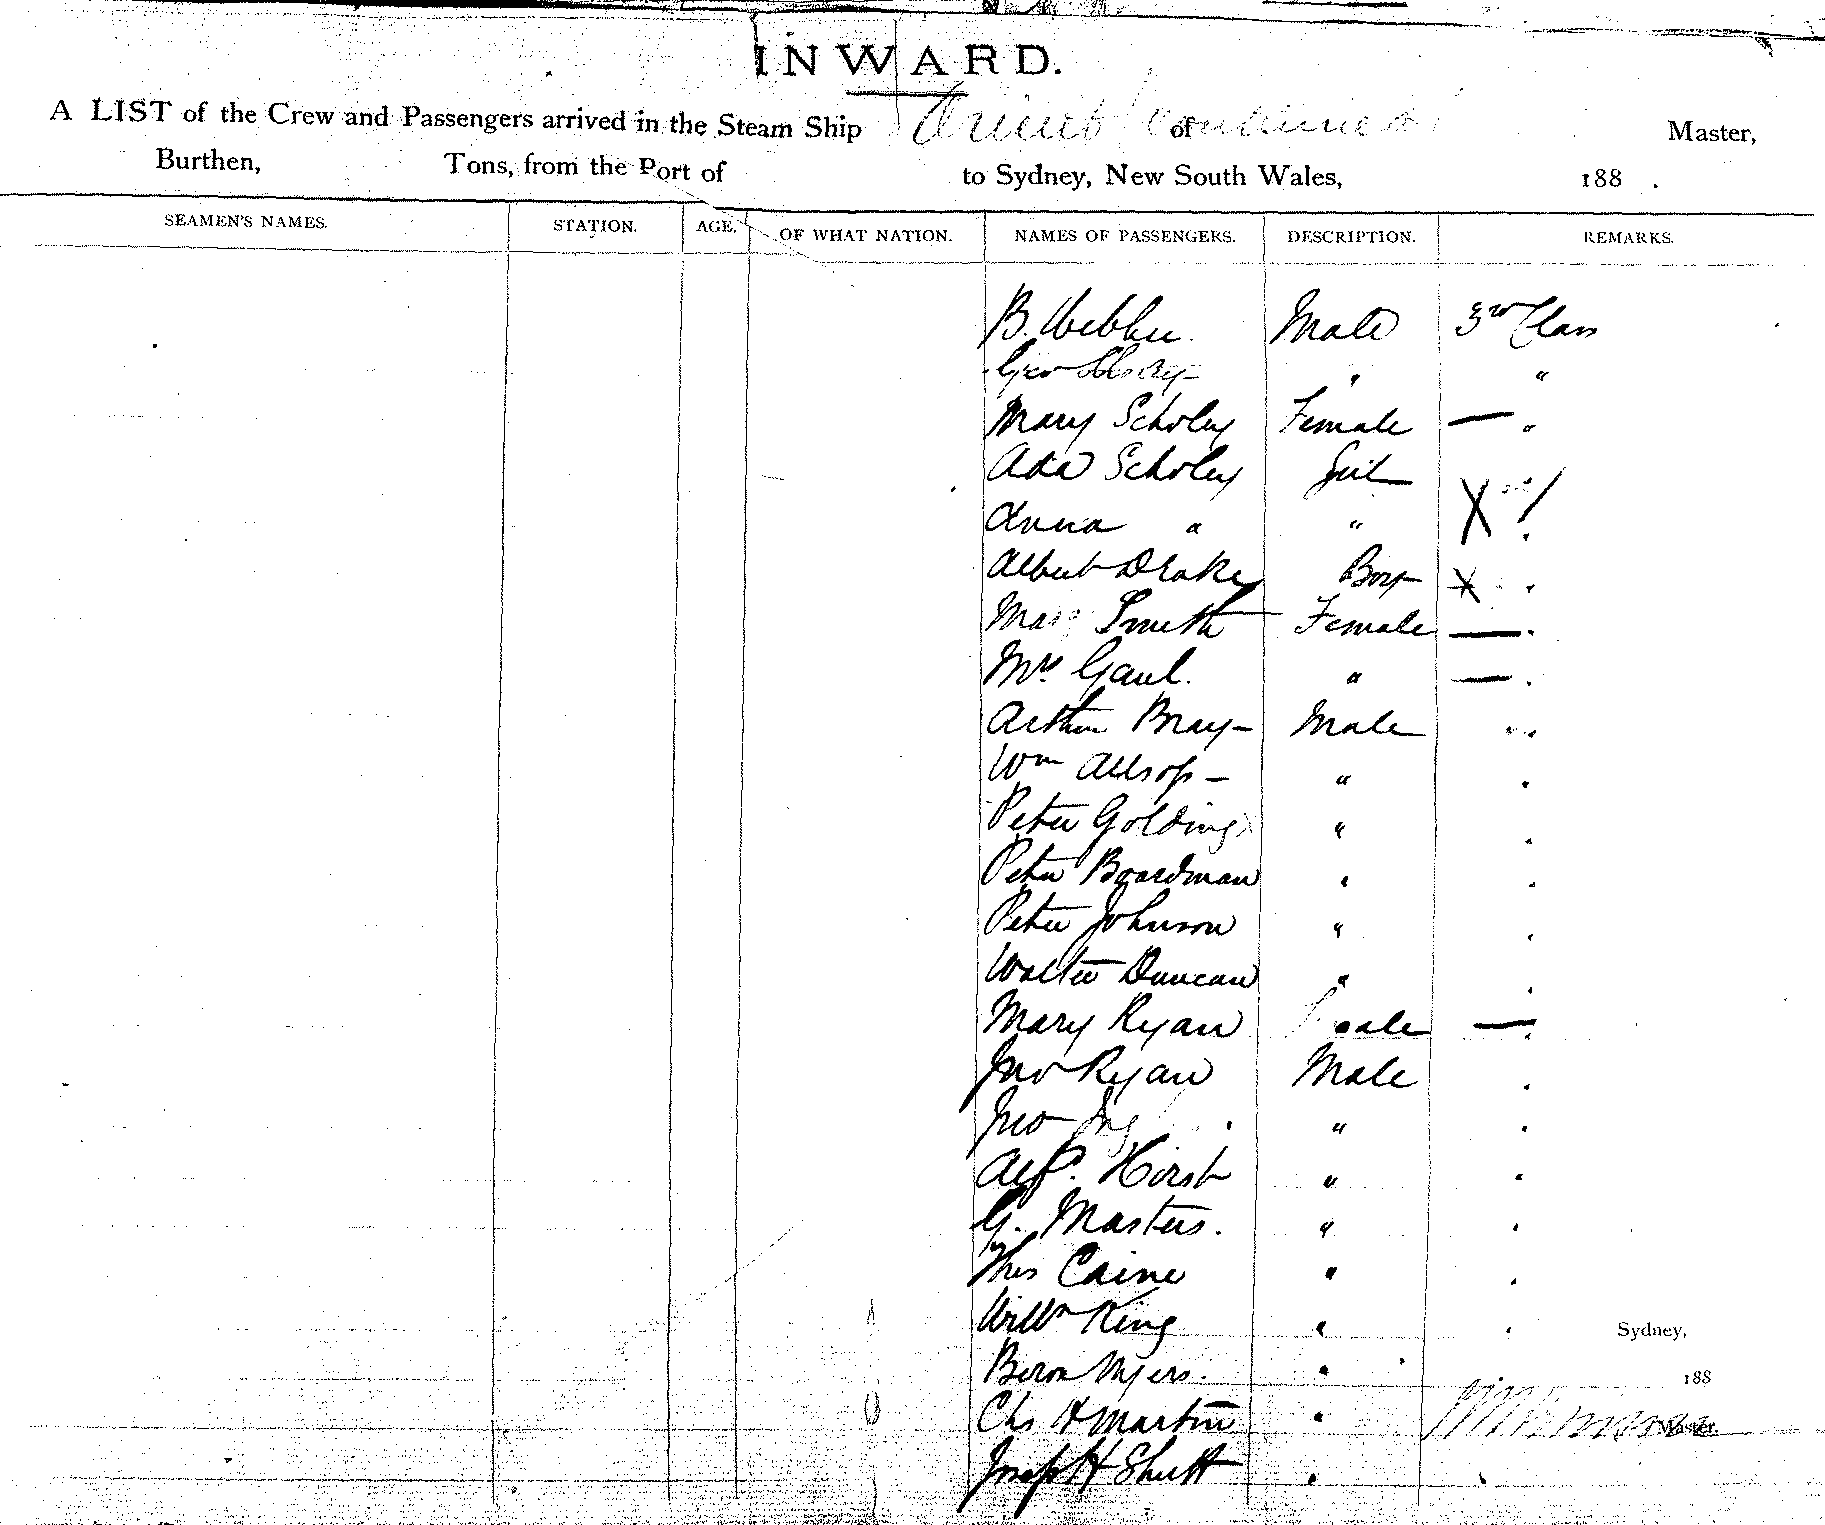 INWARD.
A LIST of the Crew and Passengers arrived in the Steam Ship Orient continued of Master,
Burthen, Tons, from the Port of to Sydney, New South Wales, 188 .
SEAMEN'S NAMES. STATION. AGE. OF WHAT NATION. NAMES OF PASSENGERS. DESCRIPTION. REMARKS.
B. Webber. Male 3rd Class
Geo " "
Mary Scholey Female — "
Ada Scholey Girl
Anna " " X
Albert Drake Boy X "
Mary Smith Female — "
Mrs. Gaul. " — "
Arthur Bray — Male "
Wm Allsop — " "
Peter Golding " "
Peter Boardman " "
Peter Johnson " "
Walter Duncan " "
Mary Ryan — "
Jno Ryan Male "
Jno " "
Alf. Horst " "
G. Masters. " "
Thos Caine " "
Willm King " " Sydney,
Myers. " 188
Chs H Martin " Master.
Josep H Shutt " "